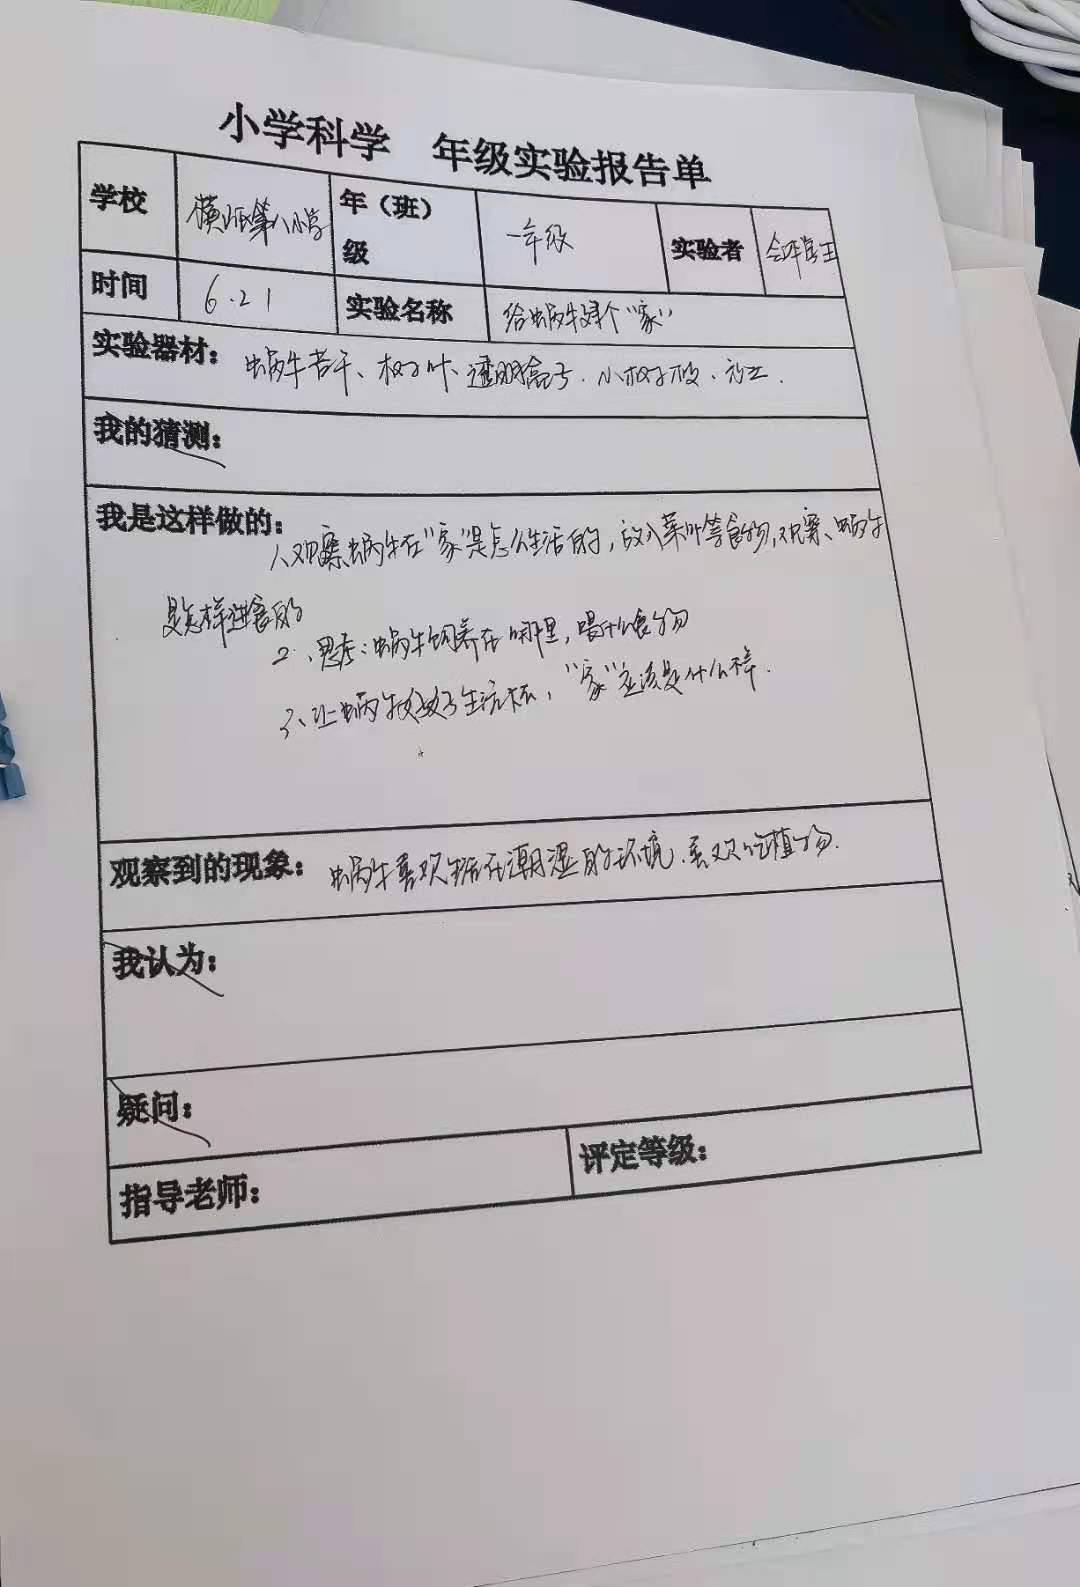 小学科学 年级实验报告单
学校 横沥第八小学 年（班）级 一年级 实验者 全班学生
时间 6.21 实验名称 给蜗牛建个“家”
实验器材： 蜗牛若干、树叶、透明盒子、小树枝、泥土.
我的猜测：
我是这样做的：
1、观察蜗牛在“家”是怎么生活的，放入菜叶等食物，观察、蜗牛
是怎样进食的
2、思考：蜗牛饲养在哪里，喂什么食物
3、让蜗牛更好生活，“家”应该是什么样.
观察到的现象： 蜗牛喜欢生活在潮湿的环境.喜欢吃植物.
我认为：
疑问：
指导老师： 评定等级：